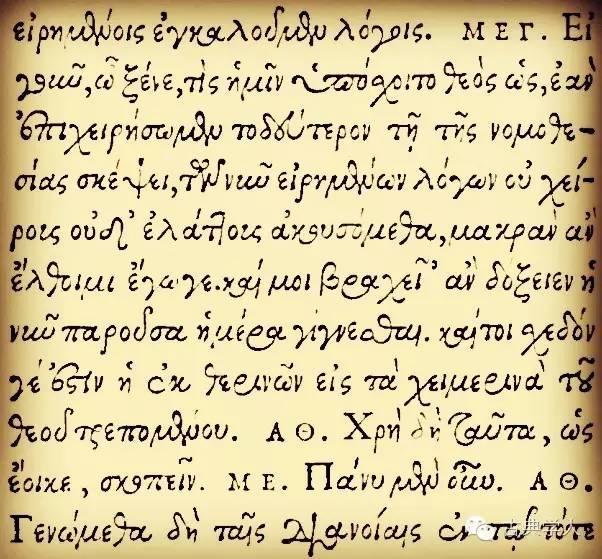 εἰρημένοις ἐγκαλοῦμεν λόγοις. ΜΕΓ. Εἰ
γοῦν, ὦ ξένε, τὶς ἡμῖν ὑπόσχοιτο θεὸς ὡς, ἐὰν
ἐπιχειρήσωμεν τὸ δεύτερον τῇ τῆς νομοθε-
σίας σκέψει, τῶν νῦν εἰρημένων λόγων οὐ χεί-
ροις οὐδ' ἐλάττοις ἀκουσόμεθα, μακρὰν ἂν
ἔλθοιμι ἔγωγε. καί μοι βραχεῖ' ἂν δόξειεν ἡ
νῦν παροῦσα ἡμέρα γίγνεσθαι. καίτοι σχεδόν
γέ ἐστιν ἡ ἐκ θερινῶν εἰς τὰ χειμερινὰ τοῦ
θεοῦ τρεπομένου. ΑΘ. Χρὴ δὴ ταῦτα, ὡς
ἔοικε, σκοπεῖν. ΜΕ. Πάνυ μὲν οὖν. ΑΘ.
Γενώμεθα δὴ ταῖς διανοίαις ἐν τῷ τότε
古典学人